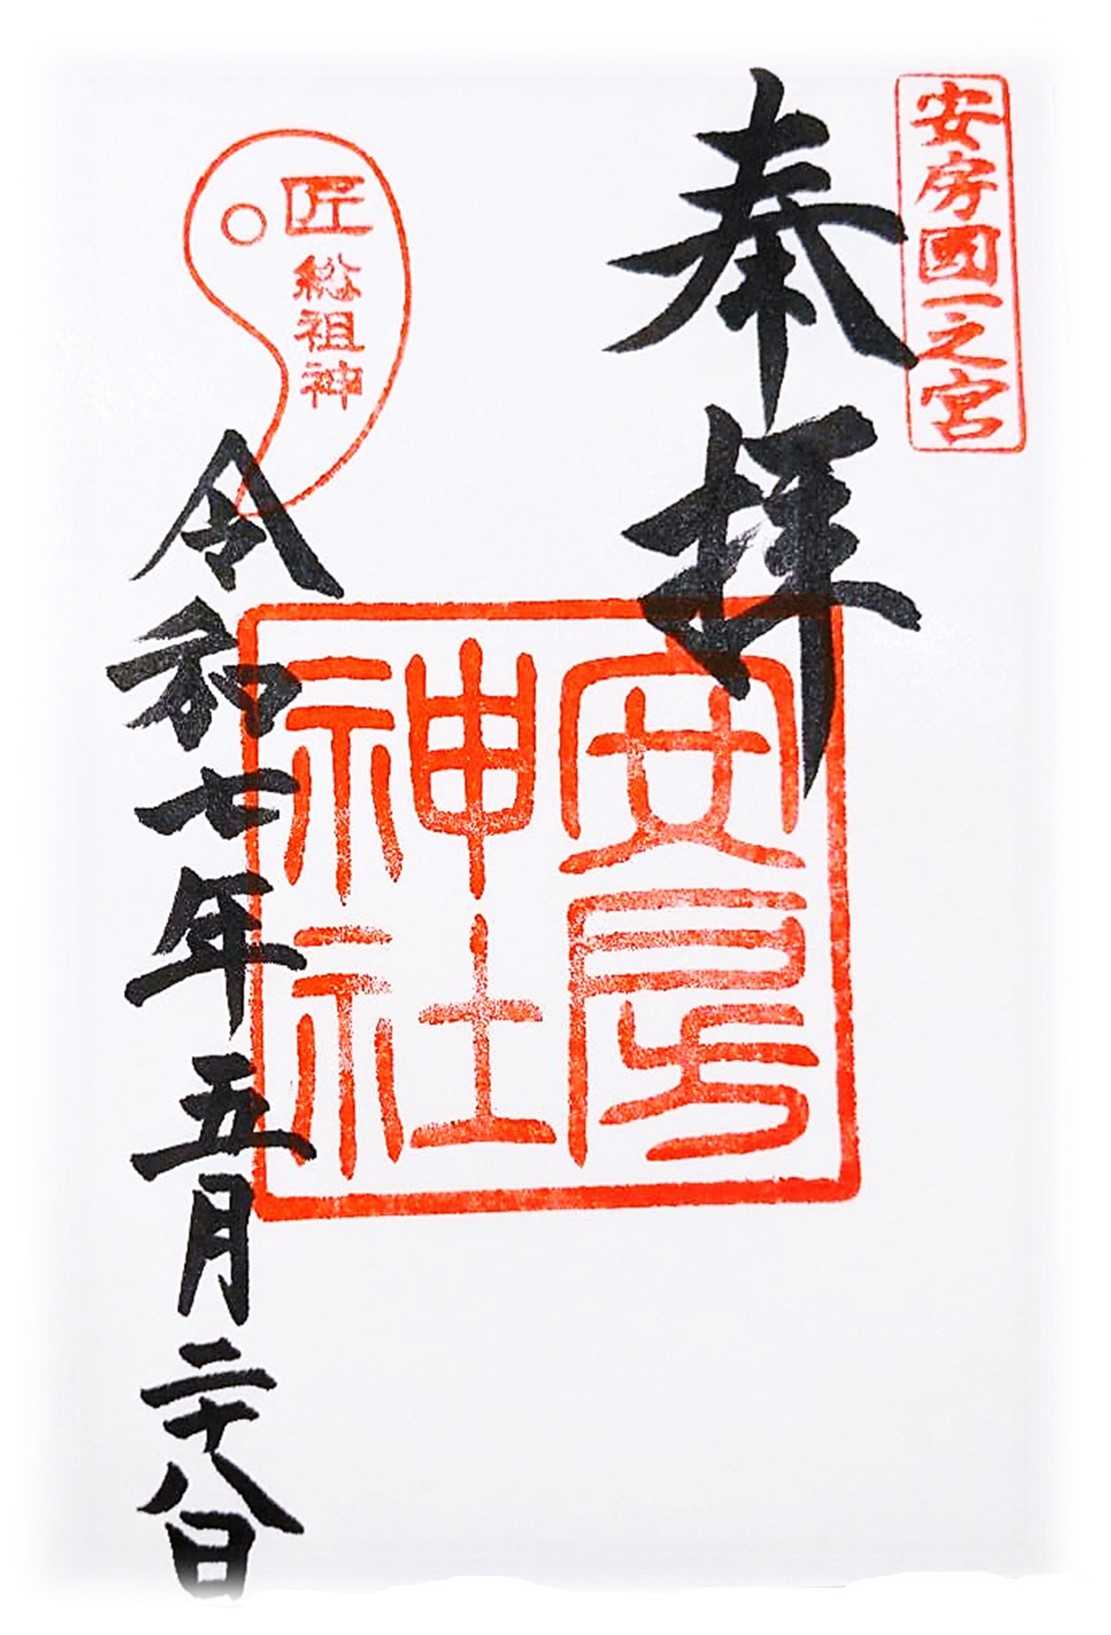 安房國一之宮
奉拝
安房
神社
匠
総祖神
令和七年五月二十八日